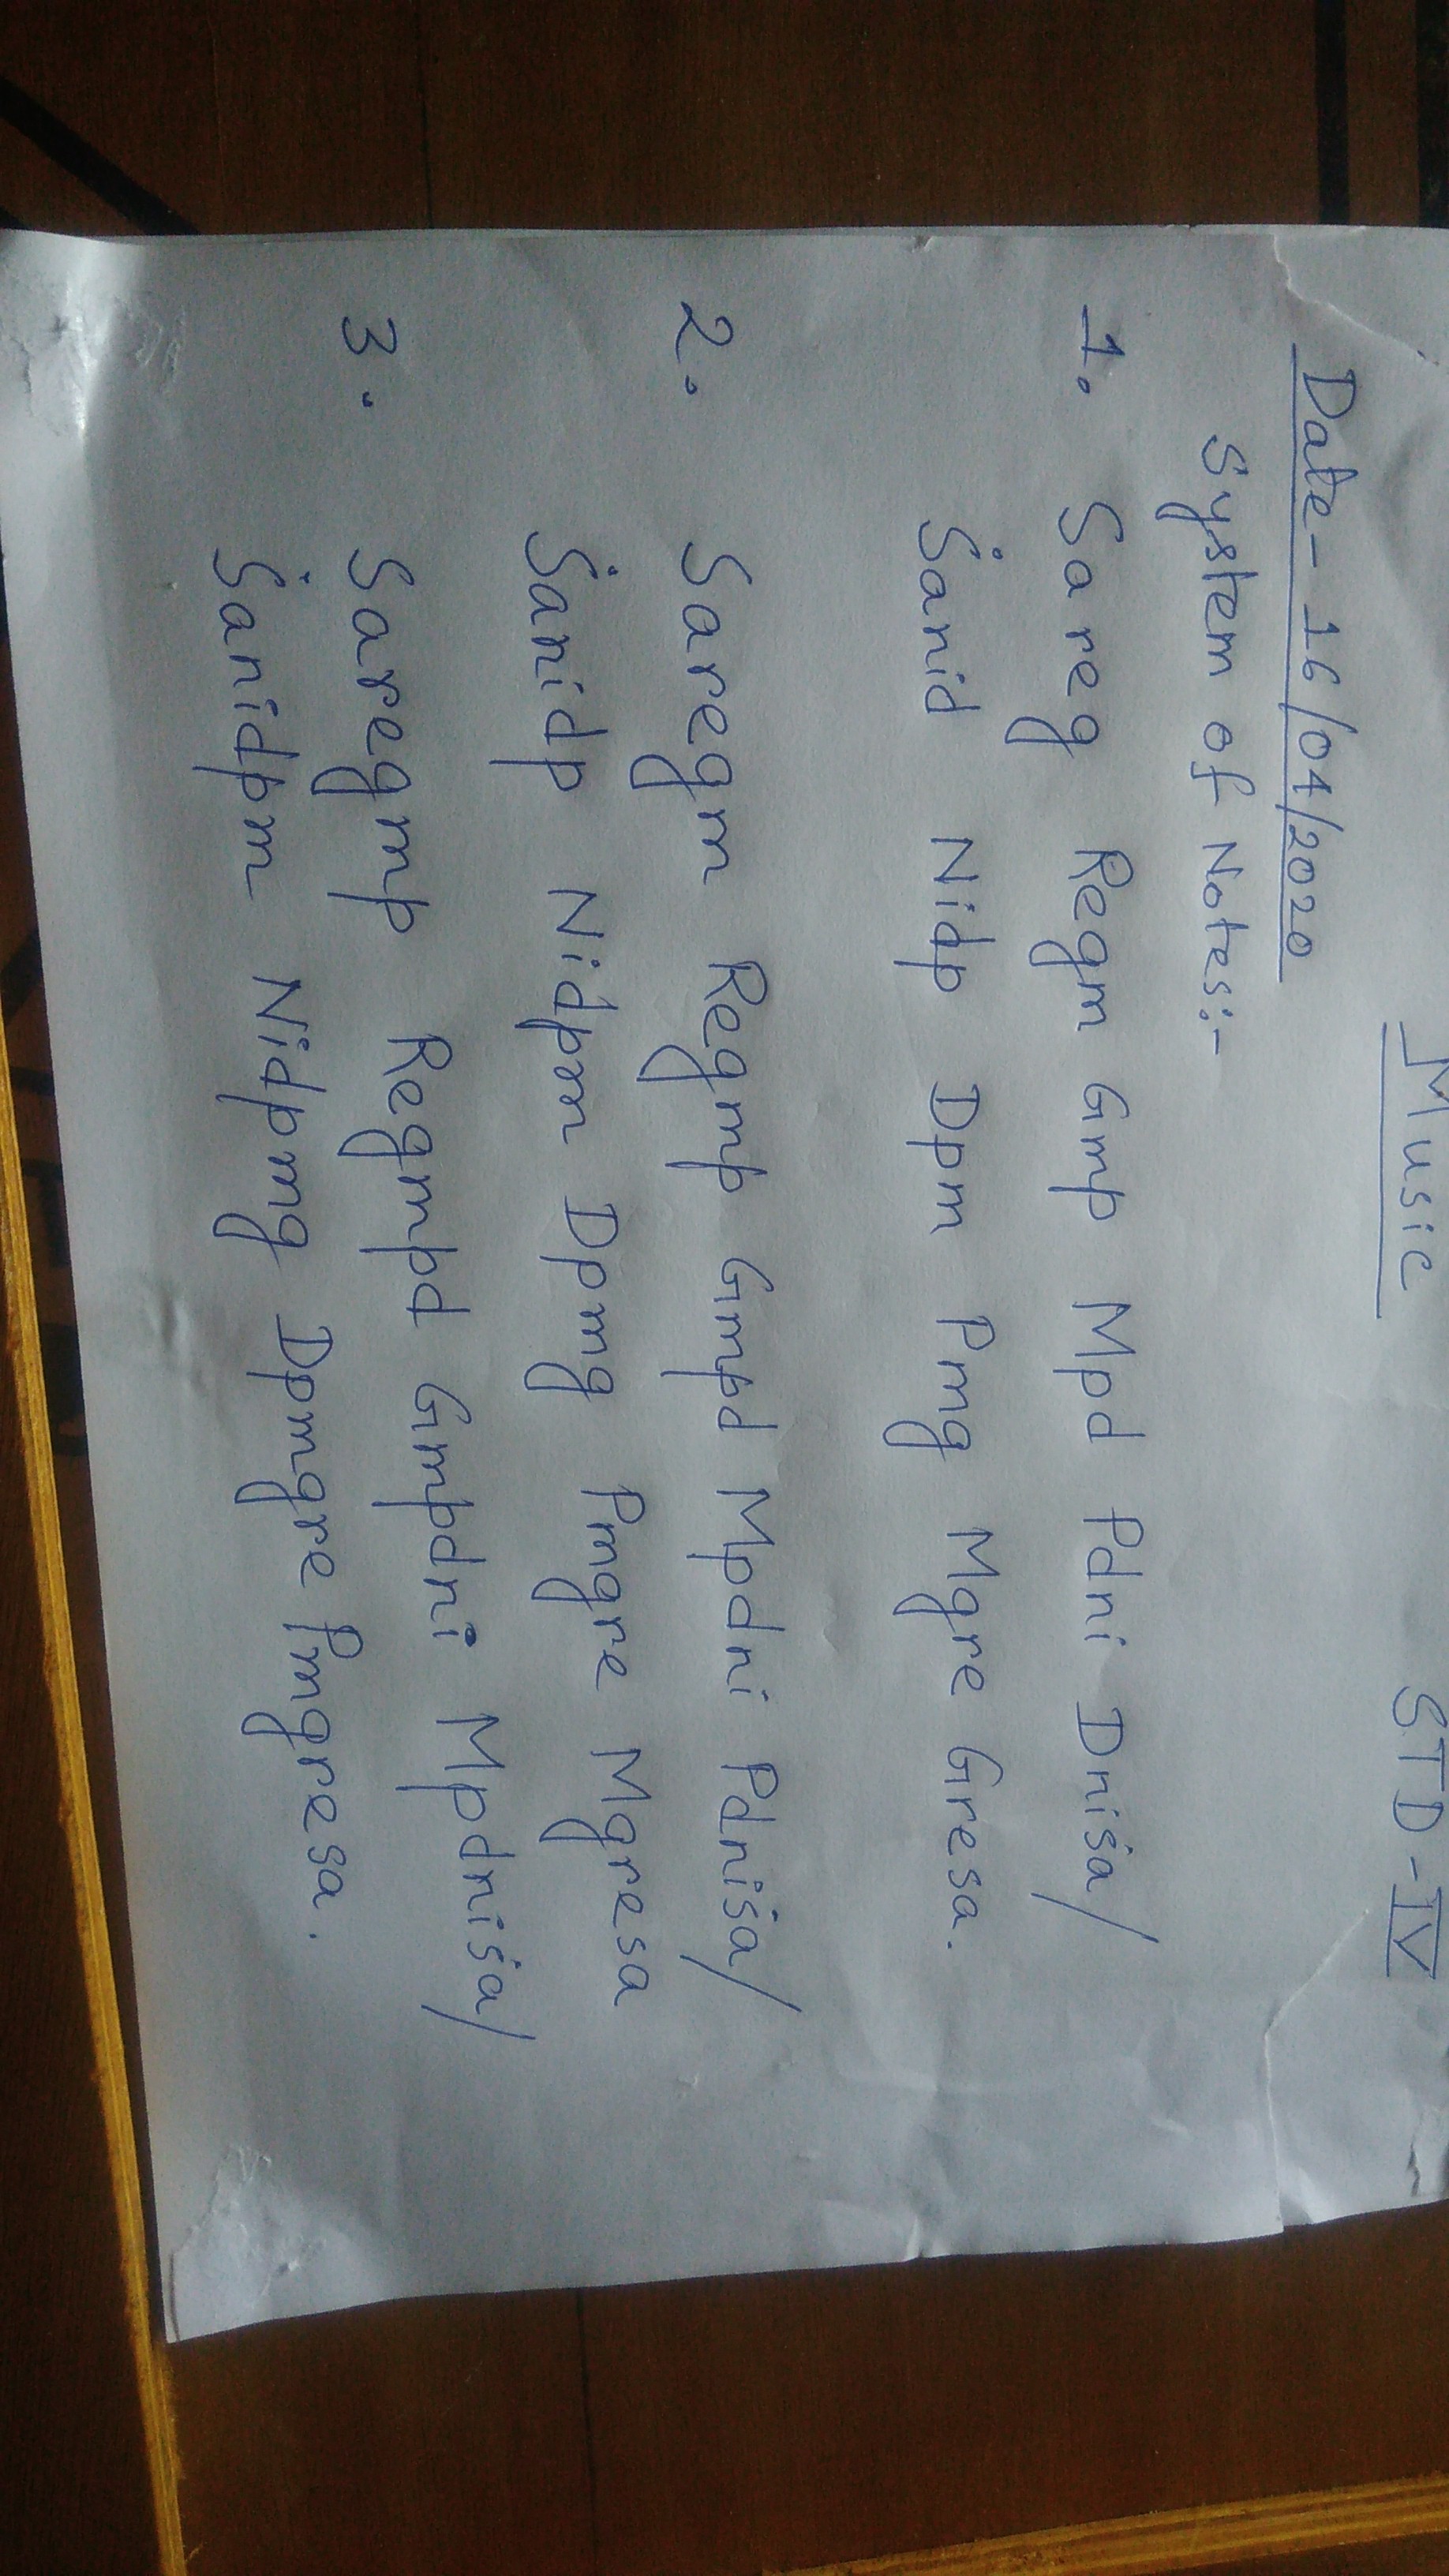 Music STD-IV
Date-16/04/2020
System of Notes:-
1. Sareg Regm Gmp Mpd Pdni Dniṡa/
Ṡanid Nidp Dpm Pmg Mgre Gresa.
2. Saregm Regmp Gmpd Mpdni Pdniṡa/
Ṡanidp Nidpm Dpmg Pmgre Mgresa
3. Saregmp Regmpd Gmpdni Mpdniṡa/
Ṡanidpm Nidpmg Dpmgre Pmgresa.